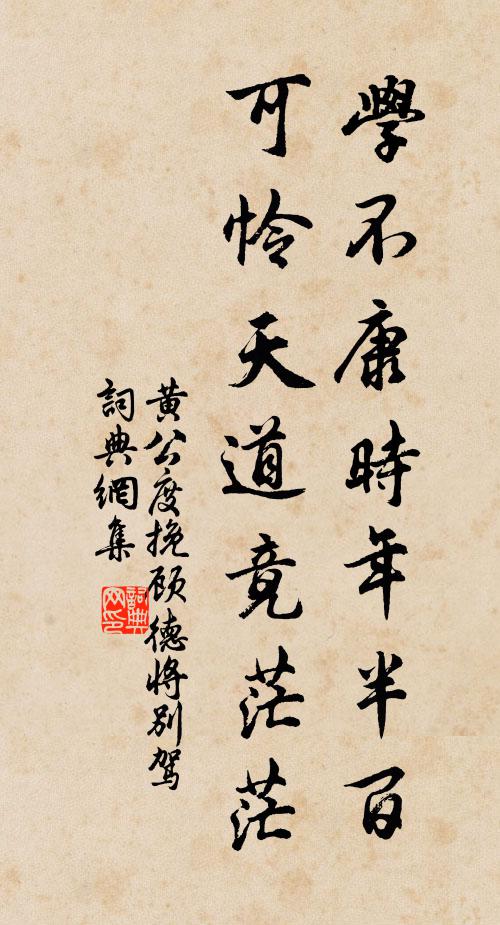 學不康時年半百
可怜天道竟茫茫
黃公度挽顧德將別駕
詞典網集
詞典网印